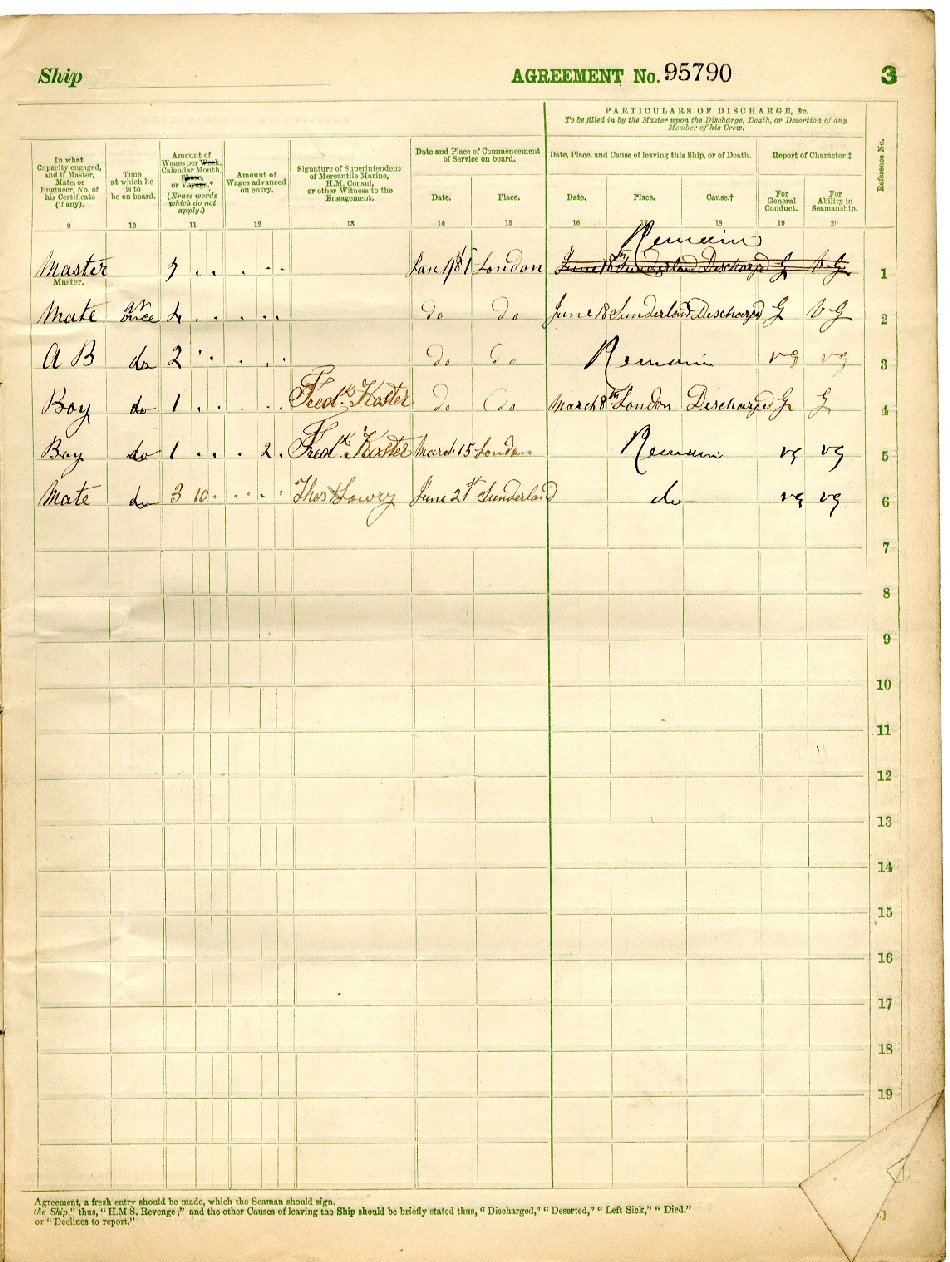 Ship AGREEMENT No. 95790 3
PARTICULARS OF DISCHARGE, &c.
To be filled in by the Master upon the Discharge, Death, or Desertion of any
Member of his Crew.
In what
Capacity engaged,
and if Master,
Mate, or
Engineer, No. of
his Certificate
(if any).
Time
at which he
is to
be on board.
Amount of
Wages per Week,
Calendar Month,
Share,
or Voyage.*
(*Erase words
which do not
apply.)
Amount of
Wages advanced
on entry.
Signature of Superintendent
of Mercantile Marine,
H.M. Consul,
or other Witness to the
Engagement.
Date and Place of Commencement
of Service on board.
Date. Place.
Date, Place, and Cause of leaving this Ship, or of Death.
Date. Place. Cause.†
Report of Character‡
For
General
Conduct.
For
Ability in
Seamanship.
Reference No.
9 10 11 12 13 14 15 16 17 18 19 20
Remains
Master 7 London June Sunderland Discharged G V G 1
Master.
Mate 4 do do June 18 Sunderland Discharged G V G 2
A B do 2 do do Remain vg vg 3
Boy do 1 Fredk. do do March 8th London Discharged G G 4
Boy do 1 2 Fredk. March 15 London Remain vg vg 5
Mate do 3 10 Thos Lowry June 21st Sunderland do vg vg 6
7
8
9
10
11
12
13
14
15
16
17
18
19
Agreement, a fresh entry should be made, which the Seaman should sign.
the Ship," thus, "H.M.S. Revenge;" and the other Causes of leaving the Ship should be briefly stated thus, "Discharged," "Deserted," "Left Sick," "Died."
or "Declines to report."